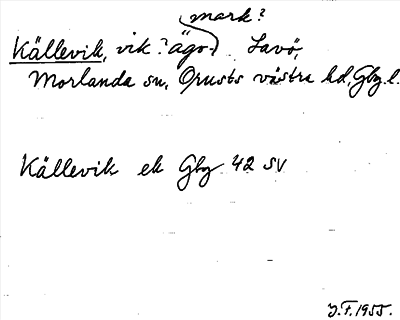 mark?
Källevik, vik? ägo? Lavö,
Morlanda sn, Orusts västra hd, Gbg. l.
Källevik ek Gbg 42 SV
J.F. 1955.